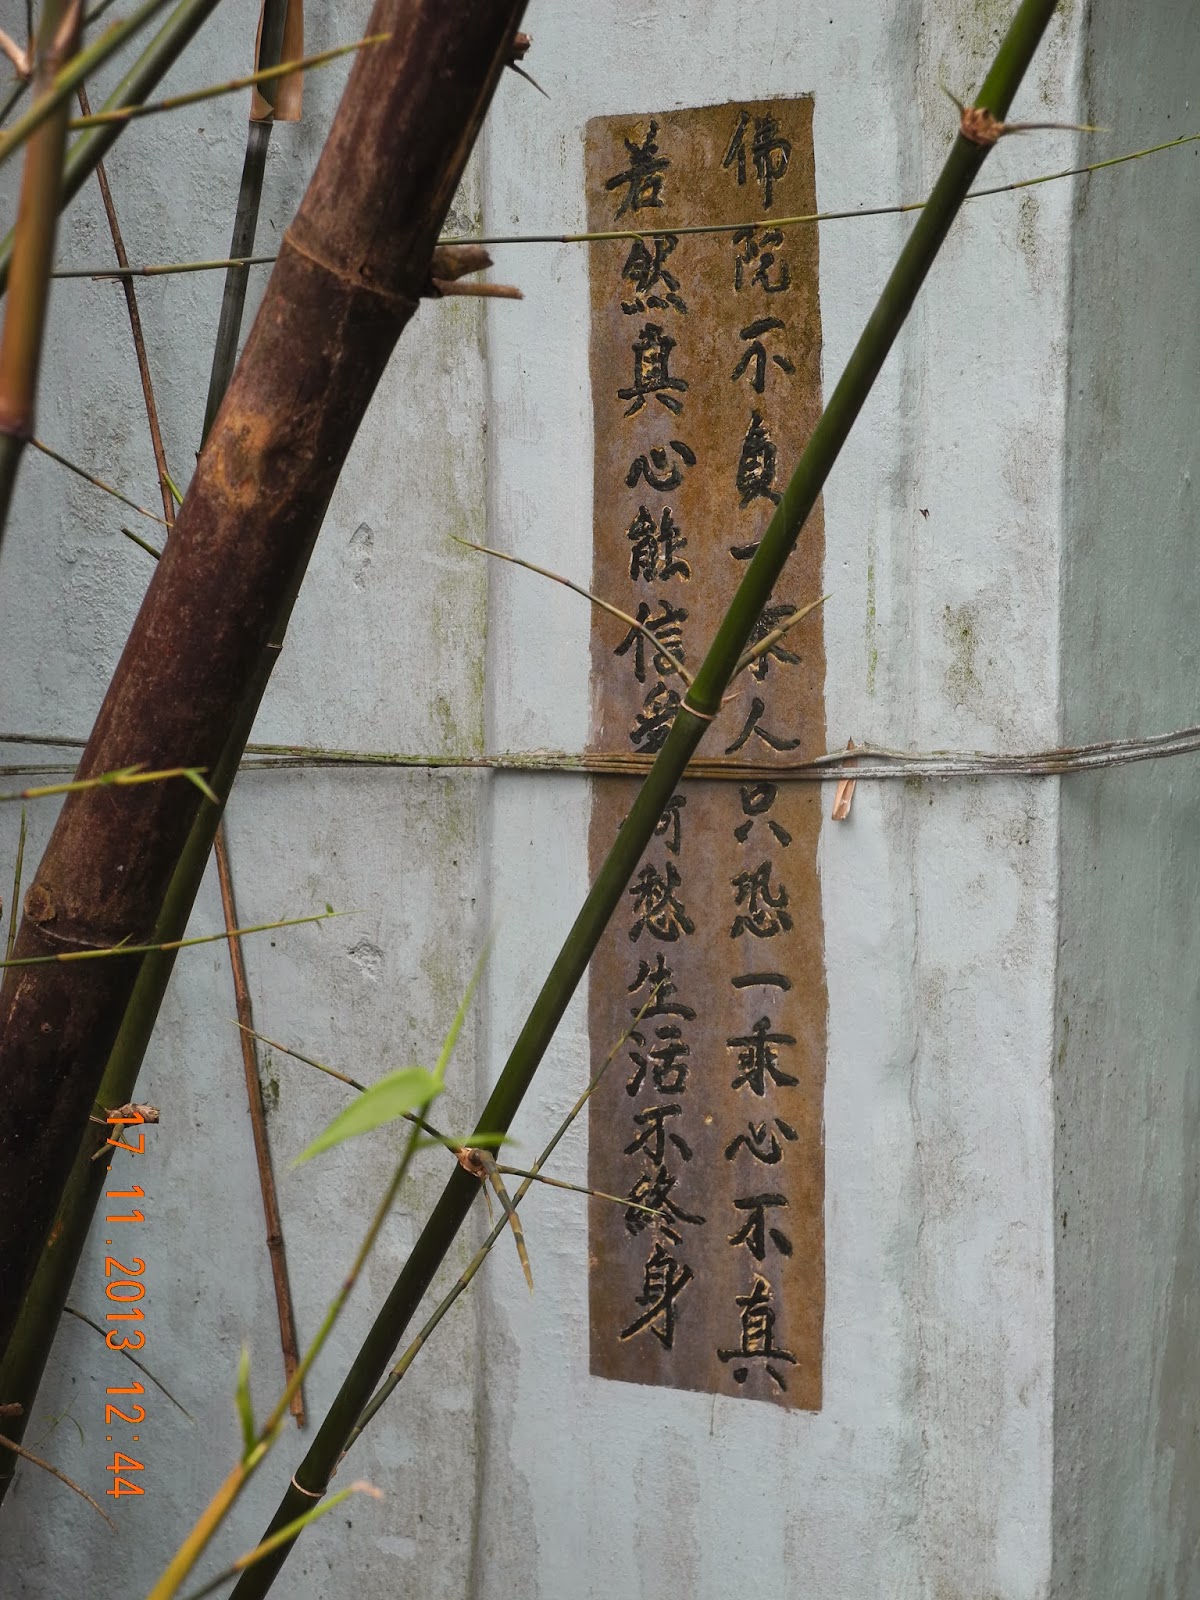 佛院不負一乘人只恐一乘心不真
若然真心能信受何愁生活不終身
17.11.2013 12:44